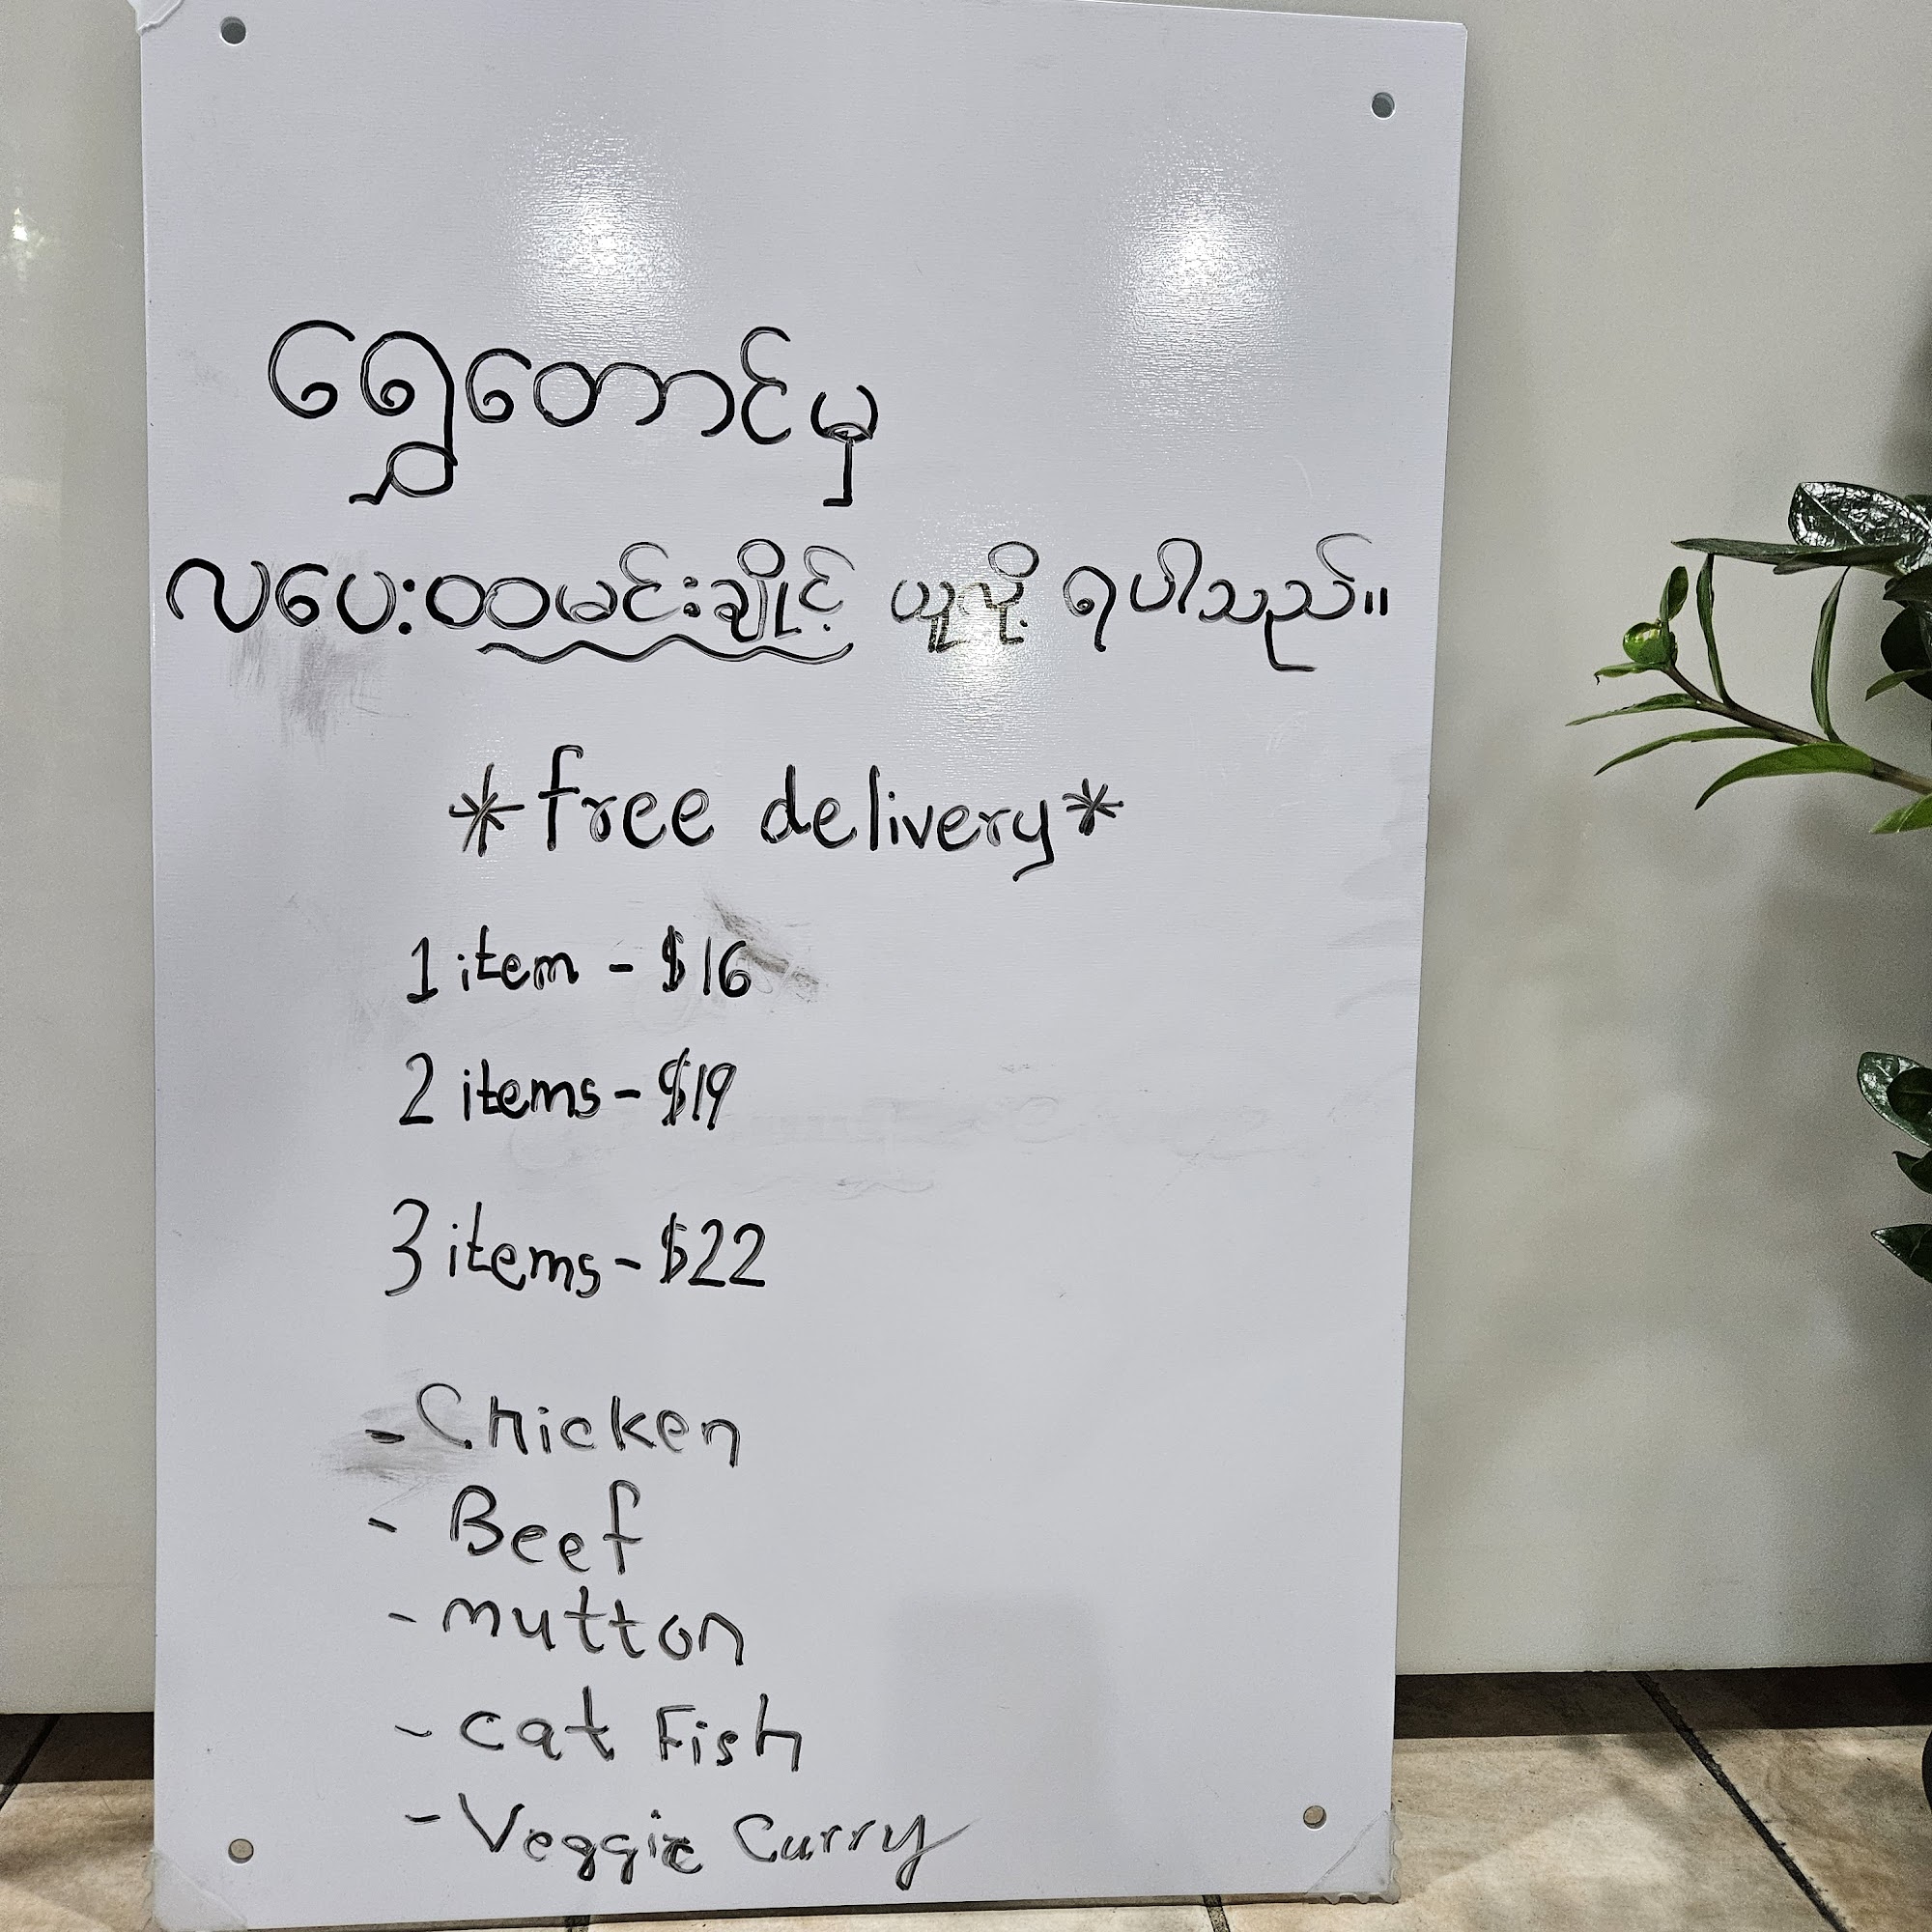 ရွှေတောင်မှ
လပေးထမင်းချိုင့် ယူလို့ ရပါသည်။
*free delivery*
1 item - $16
2 items - $19
3 items - $22
- Chicken
- Beef
- mutton
- cat Fish
- Veggie Curry